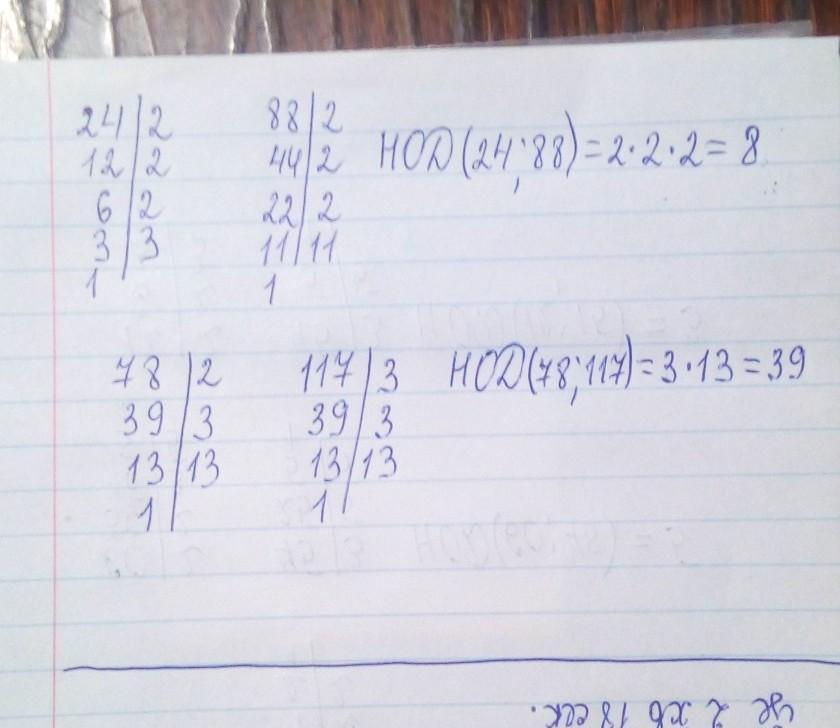 24 | 2 88 | 2 НОД(24;88)=2·2·2=8
12 | 2 44 | 2
6 | 2 22 | 2
3 | 3 11 | 11
1 1
78 | 2 117 | 3 НОД(78;117)=3·13=39
39 | 3 39 | 3
13 | 13 13 | 13
1 1
це 2 хв 18 сек.